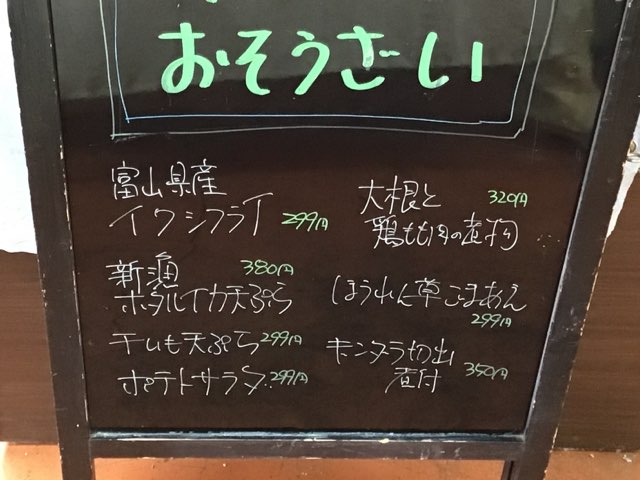 おそうざい
富山県産
イワシフライ 299円
新漁 380円
ホタルイカ天ぷら
干しいも天ぷら 299円
ポテトサラダ 299円
大根と 320円
鶏もも肉の煮物
ほうれん草ごまあえ
299円
ギンダラ切出
煮付 350円